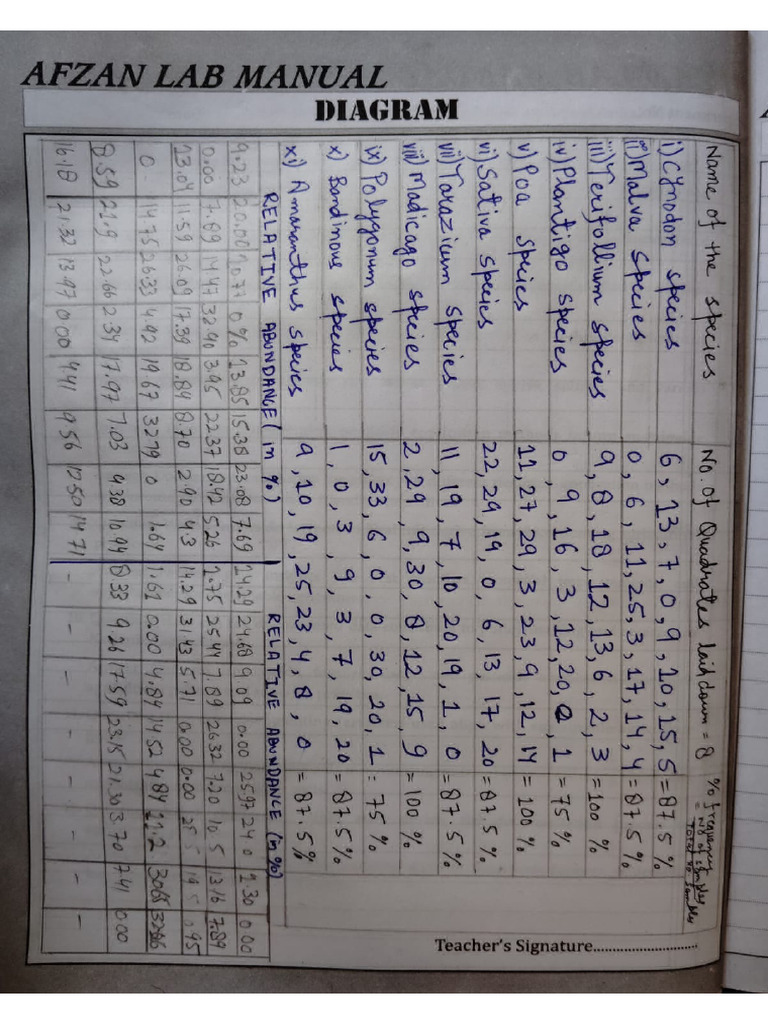 AFZAN LAB MANUAL
DIAGRAM
Name of the species No. of Quadrates laid down = 8 % frequency =
i) Cynodon species 6, 13, 7, 0, 9, 10, 15, 5 = 87.5%
ii) Malva species 0, 6, 11, 25, 3, 17, 14, 4 = 87.5%
iii) Terifollium species 9, 8, 18, 12, 13, 6, 2, 3 = 100 %
iv) Plantigo species 0, 9, 16, 3, 12, 20, 0, 1 = 75 %
v) Poa species 11, 27, 29, 3, 23, 9, 12, 14 = 100%
vi) Sativa species 22, 29, 19, 0, 6, 13, 17, 20 = 87.5%
vii) Taraxium species 11, 19, 7, 10, 20, 19, 1, 0 = 87.5%
viii) Madicago species 2, 29, 9, 30, 8, 12, 15, 9 = 100%
ix) Polygonum species 15, 33, 6, 0, 0, 30, 20, 1 : 75%
x) species 1, 0, 3, 9, 3, 7, 19, 20 = 87.5%
xi) Amaranthus species 9, 10, 19, 25, 23, 4, 8, 0 = 87.5%
RELATIVE ABUNDANCE (in %) RELATIVE ABUNDANCE (in %)
9.23 20.00 10.77 0% 13.85 15.38 23.08 7.69 14.29 24.68 9.09 0.00 25.97 24 0 2.30 0.00
0.00 7.89 14.47 32.90 3.95 22.37 18.42 5.26 2.75 25.44 7.89 26.32 7.20 10 5 13.16 7.89
13.04 11.59 26.09 7.39 18.84 8.70 2.90 4.3 14.29 31.43 5.71 0.00 0.00 .95
0 14.75 26.33 4.92 19.67 32.79 0 1.64 1.62 0.00 4.84 14.52 4.84 21.2 30.65
8.59 21.9 22.66 2.34 17.97 7.03 9.38 10.94 8.33 9.26 17.59 23.15 21.30 3.70 7.41 0.00
16.18 21.32 13.97 0.00 4.41 9.56 12.50 14.71 - - - - - - - -
Teacher's Signature..........................